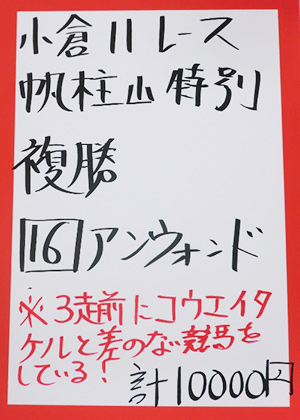 小倉11レース
帆柱山特別
複勝
16 アンウォンド
※3走前にコウエイタ
ケルと差のない競馬を
している!
計10000円